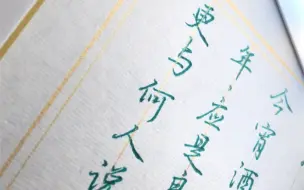 今宵酒
年应是
更与何人说